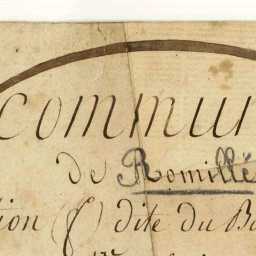 commun
de Romillé
tion (f) dite du Bo